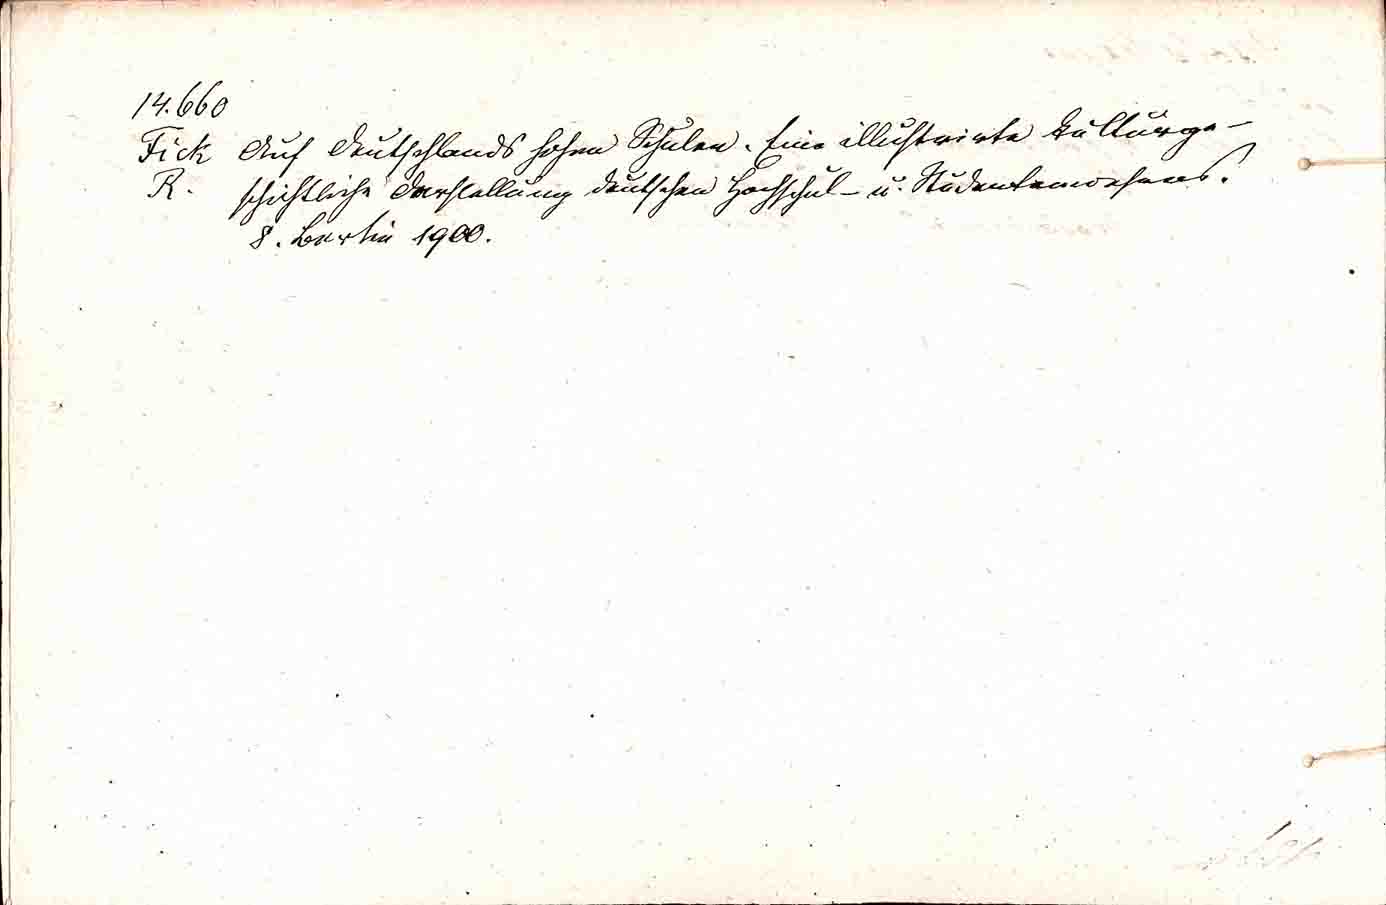 14.660
Fick Auf Deutschlands hohen Schulen. Eine illustrirte Kulturge-
R. schichtliche Darstellung deutschen Hochschul- u. Studentenwesens.
8. Berlin 1900.